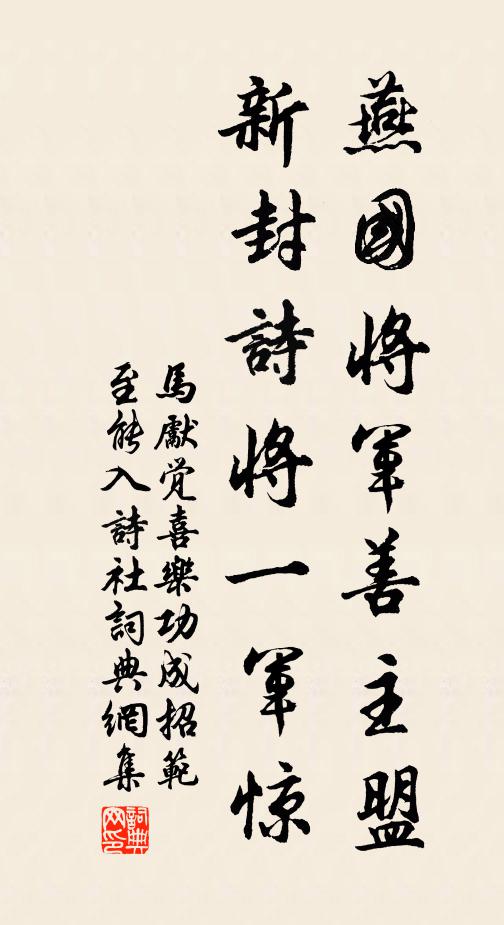 燕國將軍善主盟
新封詩將一軍惊
馬獻觉喜樂功成招範
至能入詩社詞典網集
詞典网印